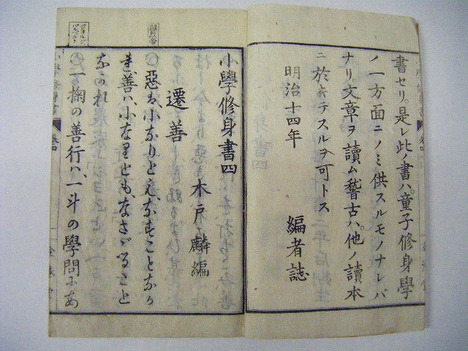 書セリ。是レ此ノ書ハ、童子修身學
ノ一方面ニノミ供スルモノナレバ
ナリ文章ヲ讀ム稽古ハ、他ノ讀本
ニ於テスルヲ可トス
明治十四年
編者誌
小學修身書四
木戸麟編
遷善
惡は小なりともなすことなかれ
善は、小なりともなさざること
なかれ
一掬の善行は、一斗の學問にあ